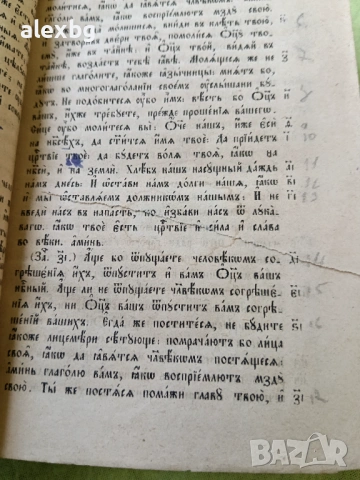 alexbg
молитися, ꙗкѡ да ꙗвѧтсѧ человѣкѡмъ. Аминь
глаголю вамъ, ꙗкѡ воспрїемлютъ мздꙋ свою.
Ты же, егда молишисѧ, вниди въ клѣть твою,
и затворивъ двери твоѧ, помолисѧ Отцꙋ твоемꙋ,
иже въ тайнѣ: и Отецъ твой, видѧй въ
тайнѣ, воздастъ тебѣ ꙗвѣ. Молѧщесѧ же не
лишше глаголите, ꙗкоже ꙗзычницы: мнѧтъ бо,
ꙗкѡ во многоглаголанїи своемъ ꙋслышани бꙋ-
дꙋтъ. Не подобитесѧ ꙋбо имъ: вѣсть бо Оц҃ъ
вашъ, ихже требꙋете, прежде прошенїѧ вашегѡ.
Сице ꙋбо молитесѧ вы: Оч҃е нашъ, иже еси
на нб҃сѣхъ, да ст҃итсѧ имѧ твое: Да прїидетъ
црⷭ҇твїе твое: да бꙋдетъ волѧ твоѧ, ꙗкѡ на
нб҃си, и на земли. Хлѣбъ нашъ насꙋщный даждь
намъ днесь: И ѡстави намъ долги нашѧ, ꙗкѡ
и мы ѡставлѧемъ должникѡмъ нашымъ: И не
введи насъ въ напасть, но избави насъ ѿ лꙋка-
вагѡ: ꙗкѡ твое есть црⷭ҇твїе и сила и слава
во вѣки. аминь.
(За. з҃і.) Аще бо ѿпꙋщаете человѣкомъ со-
грѣшенїѧ ихъ, ѿпꙋститъ и вамъ Оц҃ъ вашъ
нбⷭ҇ный. Аще ли не ѿпꙋщаете члв҃ѣкомъ согрѣше-
нїѧ ихъ, ни Оц҃ъ вашъ ѿпꙋститъ вамъ согрѣ-
шенїй вашихъ. Егда же поститесѧ, не бꙋдите
ꙗкоже лицемѣри сѣтꙋюще: помрачаютъ бо лица
своѧ, ꙗкѡ да ꙗвѧтсѧ члв҃ѣкомъ постѧщесѧ:
аминь глаголю вамъ, ꙗкѡ воспрїемлютъ мздꙋ
свою. Ты же постѧсѧ помажи главꙋ твою, и
BAZAR